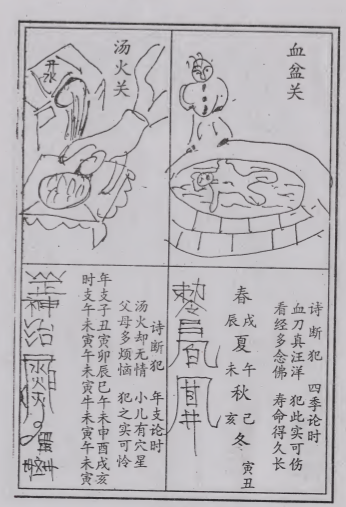 血盆关
诗断犯 四季论时
血刀真汪洋 犯此实可伤
看经多念佛 寿命得久长
春 戌辰
夏 午未
秋 己亥
冬 寅丑
汤火关
开水
诗断犯 年支论时
汤火却无情 小儿有穴星
父母多烦恼 犯之实可怜
年支子丑寅卯辰巳午未申酉戌亥
时支午未寅午未寅午未寅午未寅